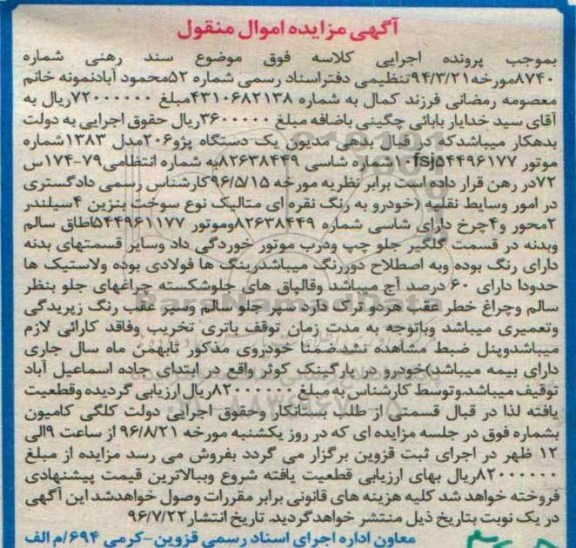 آگهی مزایده اموال منقول
بموجب پرونده اجرایی کلاسه فوق موضوع سند رهنی شماره
۸۷۴۰مورخه۹۴/۳/۲۱تنظیمی دفتراسناد رسمی شماره ۵۲محمود آبادنمونه خانم
معصومه رمضانی فرزند کمال به شماره ۴۳۱۰۶۸۲۱۳۸مبلغ ۷۲۰۰۰۰۰۰ریال به
آقای سید خدایار بابائی چگینی باضافه مبلغ ۳۶۰۰۰۰۰ریال حقوق اجرایی به دولت
بدهکار میباشدکه در قبال بدهی مدیون یک دستگاه پژو۲۰۶مدل ۱۳۸۳شماره
موتور ۱۰fsj۵۴۴۹۶۱۷۷شماره شاسی ۸۲۶۳۸۴۴۹به شماره انتظامی۷۹-۱۷۴س
۷۲در رهن قرار داده است برابر نظریه مورخه ۹۶/۵/۱۵کارشناس رسمی دادگستری
در امور وسایط نقلیه (خودرو به رنگ نقره ای متالیک نوع سوخت بنزین ۴سیلندر
۲محور و۴چرخ دارای شاسی شماره ۸۲۶۳۸۴۴۹وموتور ۵۴۴۹۶۱۱۷۷اطاق سالم
وبدنه در قسمت گلگیر جلو چپ ودرب موتور خوردگی داد وسایر قسمتهای بدنه
دارای رنگ بوده وبه اصطلاح دوررنگ میباشدرینگ ها فولادی بوده ولاستیک ها
حدودا دارای ۶۰ درصد آج میباشد وقالپاق های جلوشکسته چراغهای جلو بنظر
سالم وچراغ خطر عقب هردو ترک دارد سپر جلو سالم وسپر عقب رنگ زیریدگی
وتعمیری میباشد وباتوجه به مدت زمان توقف باتری تخریب وفاقد کارائی لازم
میباشدوپنل ضبط مشاهده نشدضمنا خودروی مذکور تابهمن ماه سال جاری
دارای بیمه میباشد)خودرو در پارگینگ کوثر واقع در ابتدای جاده اسماعیل آباد
توقیف میباشدوتوسط کارشناس به مبلغ ۸۲۰۰۰۰۰۰ریال ارزیابی گردیده وقطعیت
یافته لذا در قبال قسمتی از طلب بستانکار وحقوق اجرایی دولت کلگی کامیون
بشماره فوق در جلسه مزایده ای که در روز یکشنبه مورخه ۹۶/۸/۲۱ از ساعت ۹الی
۱۲ ظهر در اجرای ثبت قزوین برگزار می گردد بفروش می رسد مزایده از مبلغ
۸۲۰۰۰۰۰۰ریال بهای ارزیابی قطعیت یافته شروع وببالاترین قیمت پیشنهادی
فروخته خواهد شد کلیه هزینه های قانونی برابر مقررات وصول خواهدشد این آگهی
در یک نوبت بتاریخ ذیل منتشر خواهدگردید. تاریخ انتشار۹۶/۷/۲۲
معاون اداره اجرای اسناد رسمی قزوین-کرمی ۶۹۴/م الف